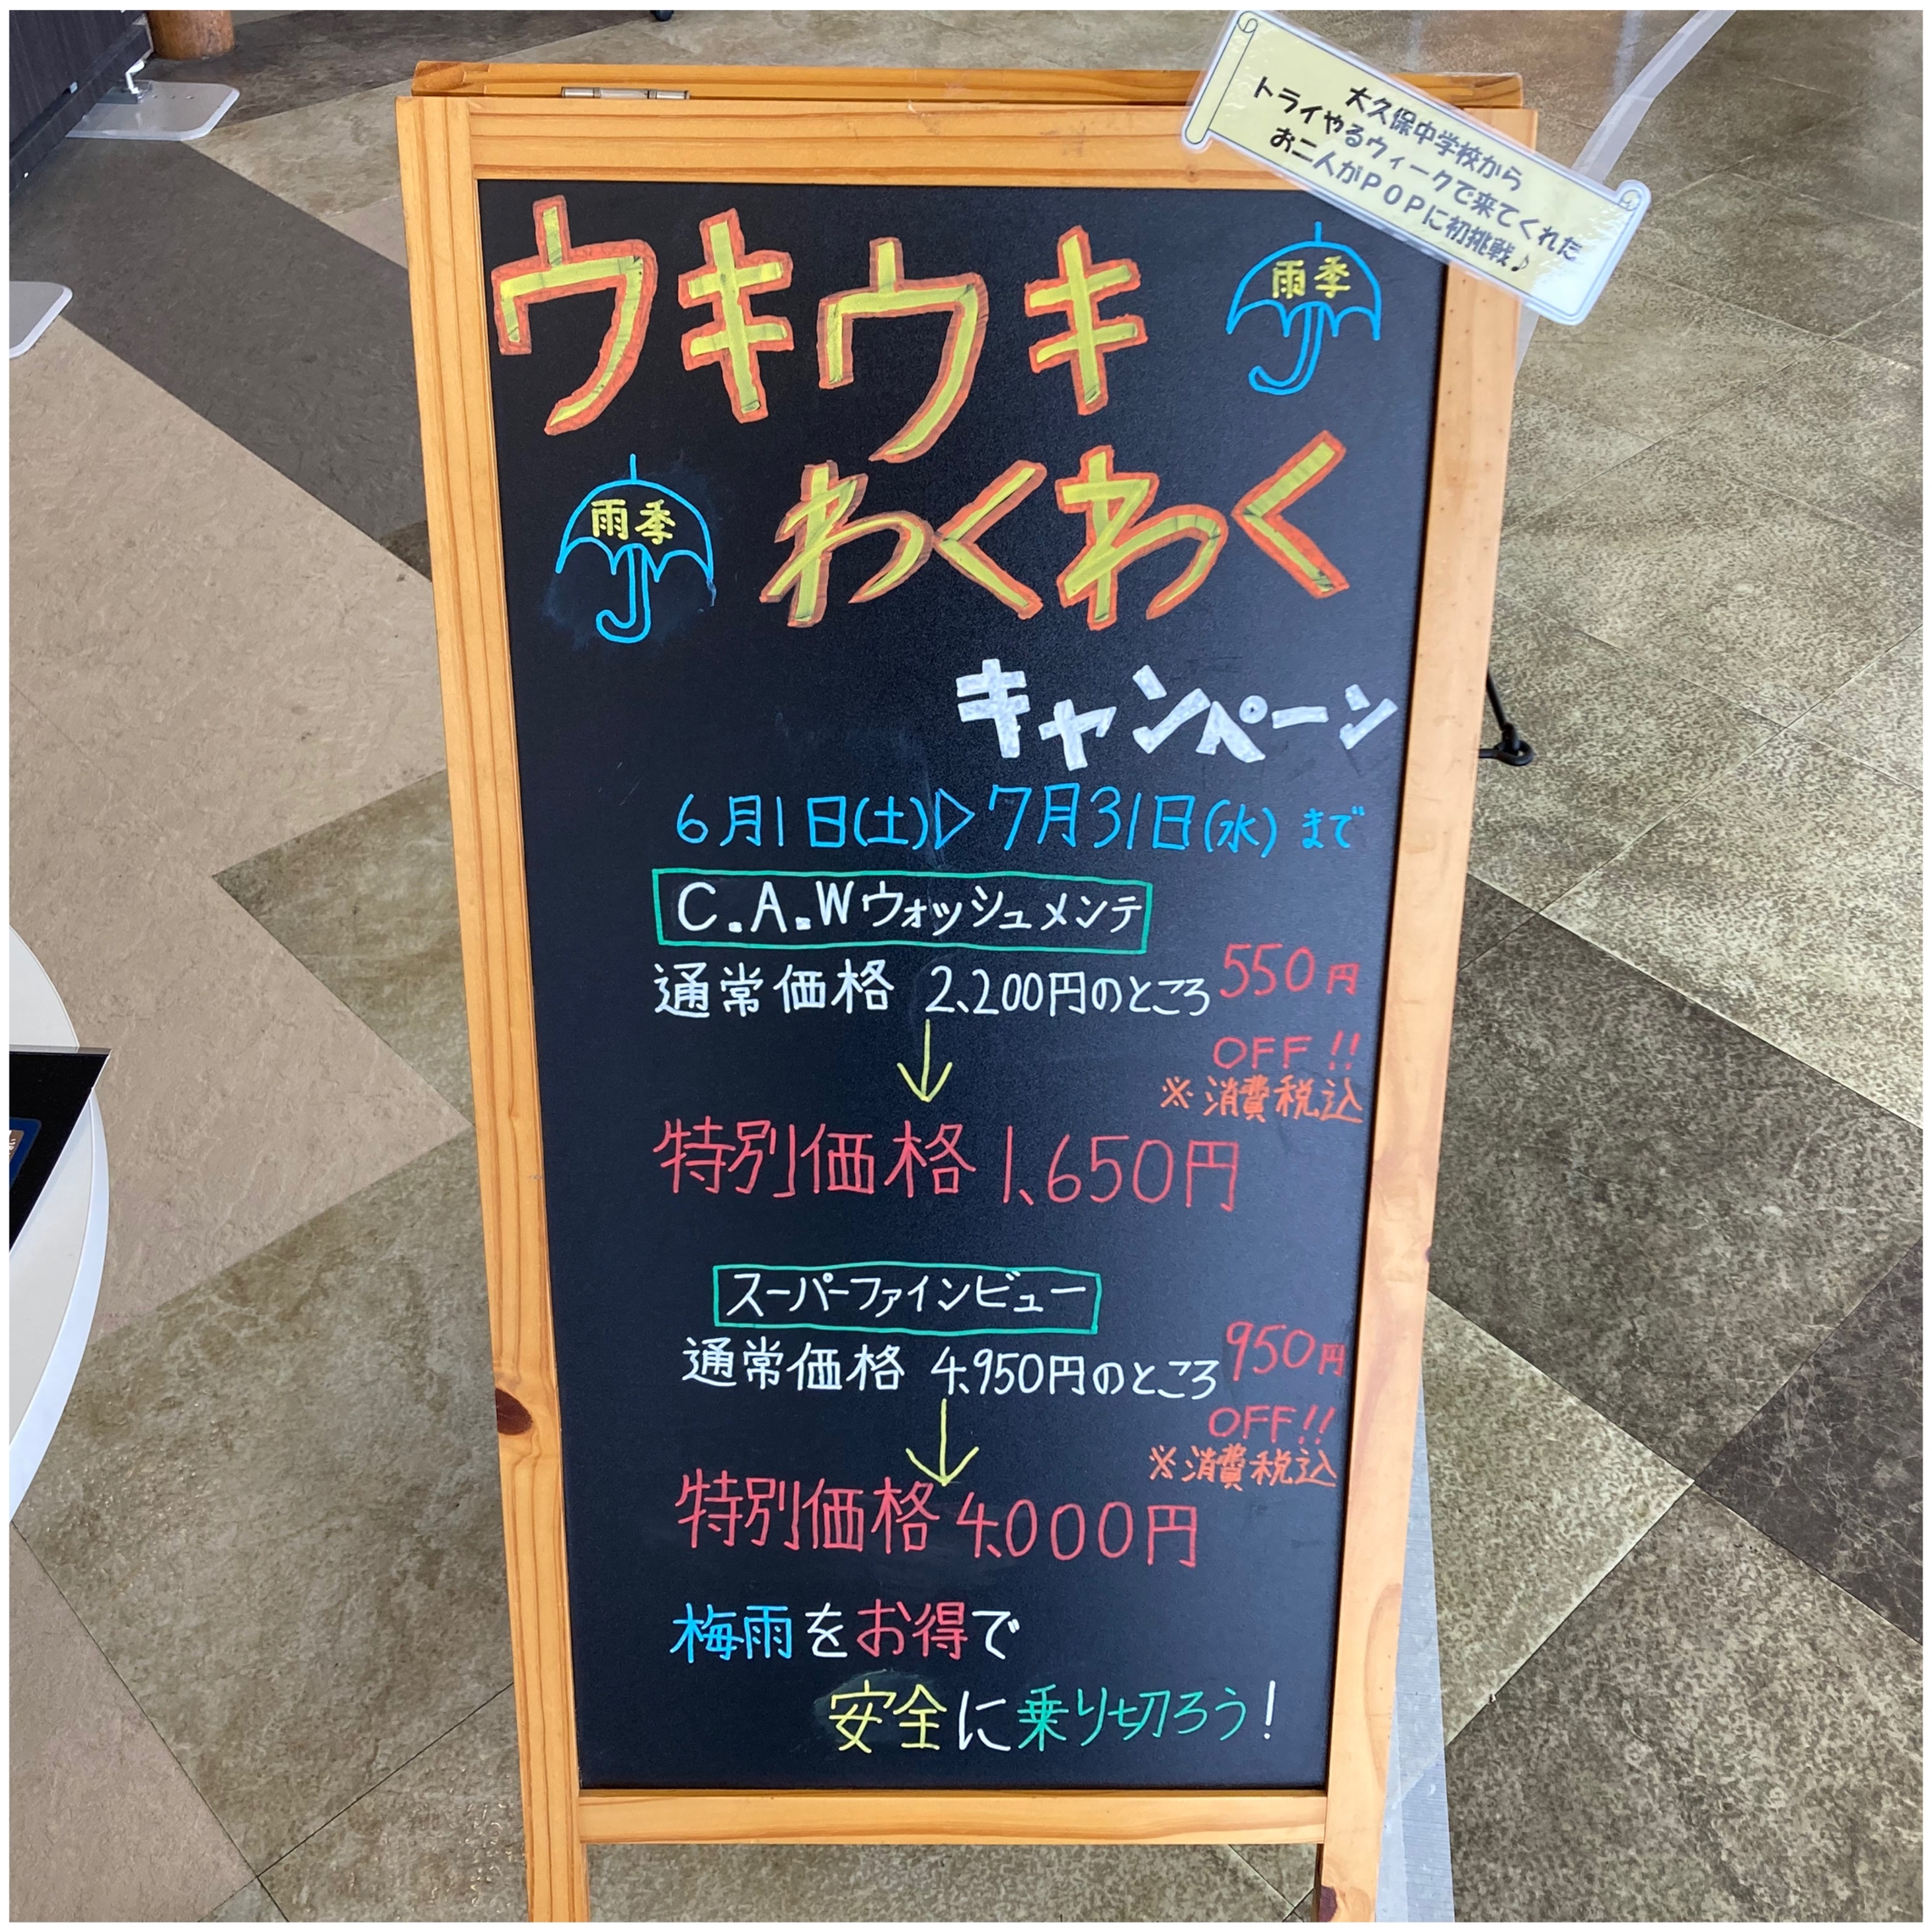 大久保中学校から
トライやるウィークで来てくれた
お二人がPOPに初挑戦♪
ウキウキ
雨季
雨季
わくわく
キャンペーン
6月1日(土)▷7月31日(水)まで
C.A.Wウォッシュメンテ
通常価格 2,200円のところ
550円
OFF!!
※消費税込
特別価格1,650円
スーパーファインビュー
通常価格 4,950円のところ
950円
OFF!!
※消費税込
特別価格4,000円
梅雨をお得で
安全に乗り切ろう!